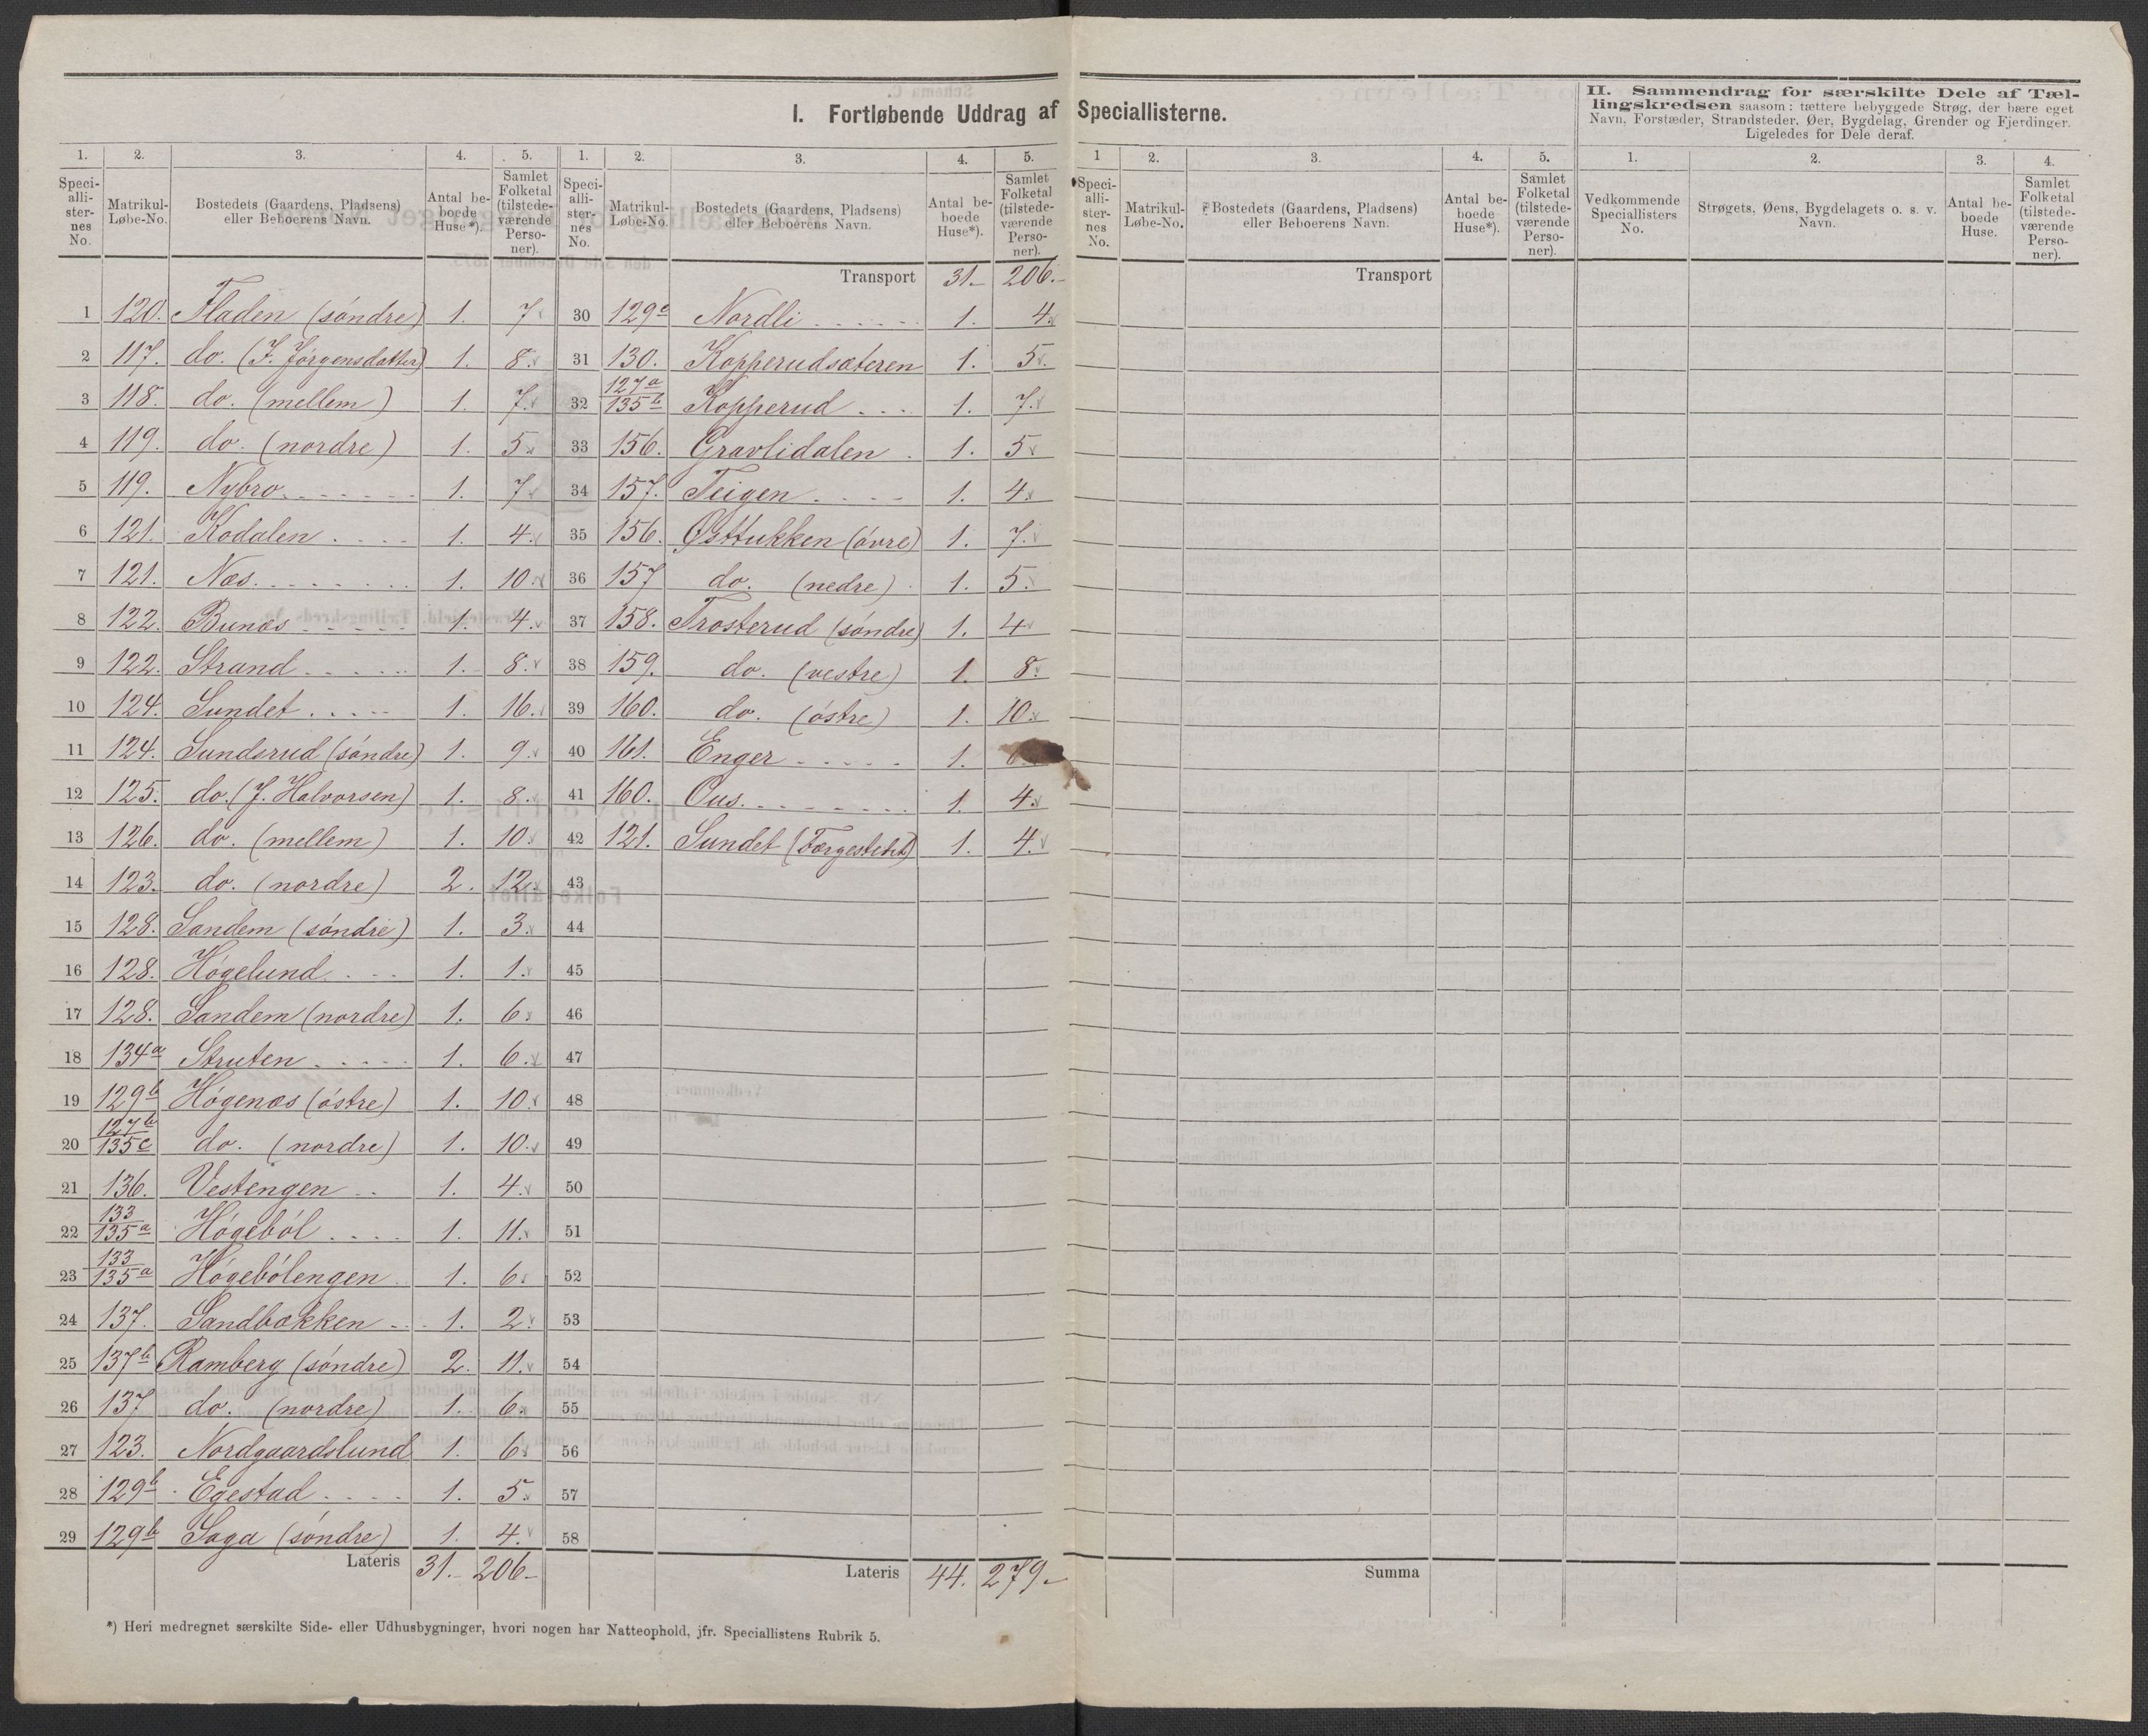 I. Fortløbende Uddrag af Speciallisterne.
II. Sammendrag for særskilte Dele af Tæl-
lingskredsen saasom: tættere bebyggede Strøg, der bære eget
Navn, Forstæder, Strandsteder, Øer, Bygdelag, Grender og Fjerdinger.
Ligeledes for Dele deraf.
1. 2. 3. 4. 5. 1. 2. 3. 4. 5. 1 2. 3. 4. 5. 1. 2. 3. 4.
Speci-
alli-
ster-
nes
No.
Matrikul-
Løbe-No.
Bostedets (Gaardens, Pladsens)
eller Beboerens Navn.
Antal be-
boede
Huse*).
Samlet
Folketal
(tilstede-
værende
Perso-
ner).
Speci-
alli-
ster-
nes
No.
Matrikul-
Løbe-No.
Bostedets (Gaardens, Pladsens)
eller Beboerens Navn.
Antal be-
boede
Huse*).
Samlet
Folketal
(tilstede-
værende
Perso-
ner).
Speci-
alli-
ster-
nes
No.
Matrikul-
Løbe-No.
Bostedets (Gaardens, Pladsens)
eller Beboerens Navn.
Antal be-
boede
Huse*).
Samlet
Folketal
(tilstede-
værende
Perso-
ner).
Vedkommende
Speciallisters
No.
Strøgets, Øens, Bygdelagets o. s. v.
Navn.
Antal be-
boede
Huse.
Samlet
Folketal
(tilstede-
værende
Perso-
ner).
1 120. Fladen (söndre) 1. 7
2 117. do. (I. Jörgensdatter) 1. 8.
3 118. do. (mellem) 1. 7.
4 119. do. (nordre) 1. 5.
5 119. Nybro 1. 7
6 121. Kodalen 1. 4.
7 121. Næs. 1. 10.
8 122. Bunæs 1. 4.
9 122. Strand 1. 8.
10 124. Sundet 1. 16.
11 124. Sundsrud (söndre) 1. 9.
12 125. do. (J. Halvorsen) 1. 8.
13 126. do. (mellem) 1. 10.
14 123. do. (nordre) 2. 12.
15 128. Sandem (söndre) 1. 3.
16 128. Högelund 1. 1.
17 128. Sandem (nordre) 1. 6.
18 134a Struten 1. 6.
19 129b Högenæs (östre) 1. 10.
20 127b/135c do. (nordre) 1. 10.
21 136. Vestengen 1. 4.
22 133/135a Högeböl 1. 11.
23 133/135a Högebölengen 1. 6.
24 137. Sandbækken 1. 2.
25 137b Ramberg (söndre) 2. 11.
26 137 do. (nordre) 1. 6.
27 123. Nordgaardslund 1. 6.
28 129b Egestad 1. 5.
29 129b Saga (söndre) 1. 4.
Lateris 31.- 206-
Transport 31.- 206.-
30 129c Nordli 1. 4.
31 130. Kopperudsæteren 1. 5.
32 127a/135b Kopperud 1. 7.
33 156. Gravlidalen 1. 5
34 157. Teigen 1. 4.
35 156. Østtukken (övre) 1. 7.
36 157 do. (nedre) 1. 5.
37 158. Trosterud (söndre) 1. 4
38 159. do. (vestre) 1. 8.
39 160. do. (östre) 1. 10.
40 161. Enger 1.
41 160. Ous. 1. 4.
42 121. Sundet (Færgestedet) 1. 4.
43
44
45
46
47
48
49
50
51
52
53
54
55
56
57
58
Lateris 44. 279.-
Transport
Summa
*) Heri medregnet særskilte Side- eller Udhusbygninger, hvori nogen har Natteophold, jfr. Speciallistens Rubrik 5.